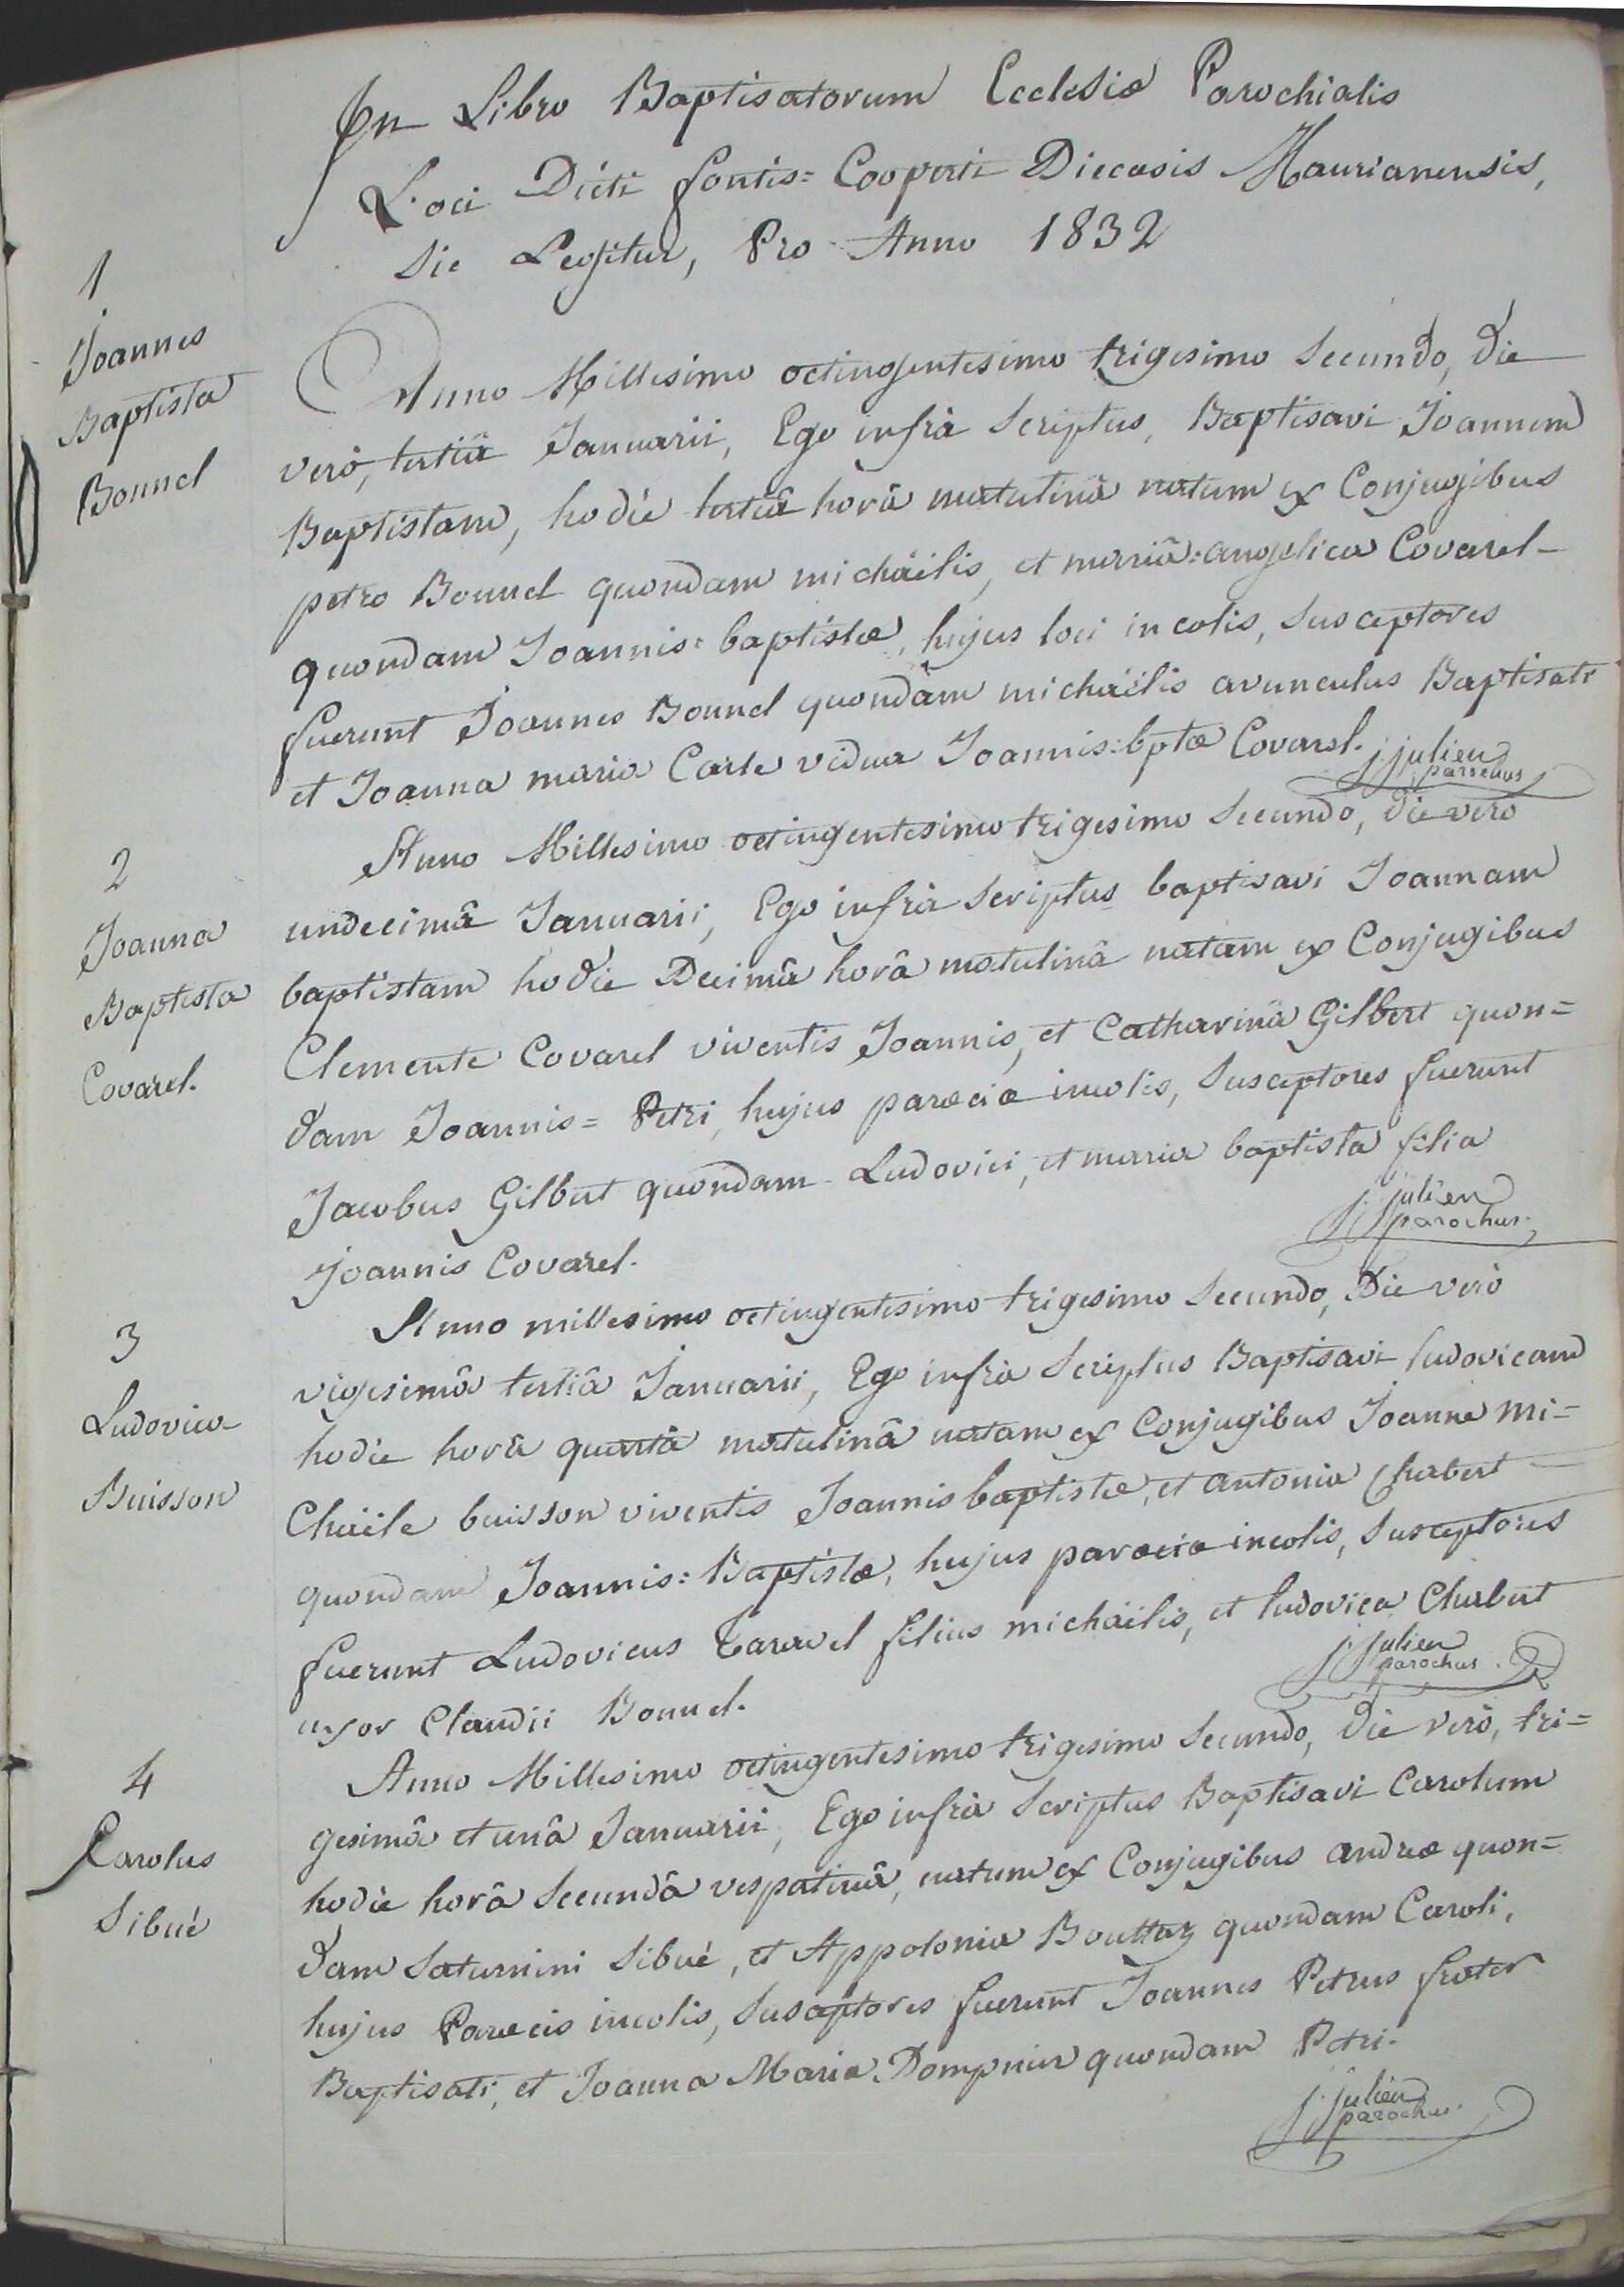 In Libro Baptisatorum Ecclesiæ Parochialis
Loci Dicti fontis= Cooperti Diecesis Maurianensis,
Sic Legitur, Pro Anno 1832
1
Joannes
Baptista
Bonnel
Anno Millesimo octingentesimo trigesimo Secundo, die
verò, tertiâ Januarii, Ego infrà Scriptus, Baptisavi Joannem
Baptistam, hodiè tertiâ horâ matutinâ natum ex Conjugibus
petro Bonnel quondam michäelis, et mariâ=angelica Covarel
quondam Joannis=baptistæ, hujus loci incolis, Susceptores
fuerunt Joannes Bonnel quondàm michäelis avunculus Baptisati
et Joanna maria Carle vidua Joannis=bptæ Covarel.
j. julien
parochus
2
Joanna
Baptista
Covarel.
Anno Millesimo octingentesimo trigesimo Secundo, die vero
undecimâ Januarii, Ego infrà Scriptus baptisavi Joannam
baptistam hodie Decimâ horâ matutinâ natam ex Conjugibus
Clemente Covarel viventis Joannis, et Catharinâ Gilbert quon=
dam Joannis= Petri, hujus paræciæ incolis, Susceptores fuerunt
Jacobus Gilbert quondam Ludovici, et maria baptista filia
Joannis Covarel.
j. julien
parochus.
3
Ludovica
Buisson
Anno millesimo octingentesimo trigesimo Secundo, Die verò
vigesimâ tertiâ Januarii, Ego infrà Scriptus Baptisavi ludovicam
hodiè horâ quartâ matutinâ natam ex Conjugibus Joanne Mi=
Chäele buisson viventis Joannis baptistæ, et antonia Charbert
quondam Joannis=Baptistæ, hujus paræciæ incolis, Susceptores
fuerunt Ludovicus Taravel filius michäelis, et ludovica Charbert
uxor Claudii Bonnel.
j. julien
parochus.
4
Carolus
Sibué
Anno Millesimo octingentesimo trigesimo Secundo, Die verò, tri=
gesimâ et unâ Januarii, Ego infrà Scriptus Baptisavi Carolum
hodiè horâ Secundâ vespatinâ, natum ex Conjugibus andreæ quon=
dam Saturnini Sibué, et Appolonia Bouttaz quondam Caroli,
hujus Paræcis incolis, Susceptores fuerunt Joannes Petrus frater
Baptisati, et Joanna Maria Dompnier quondam Petri.
j. julien
parochus.